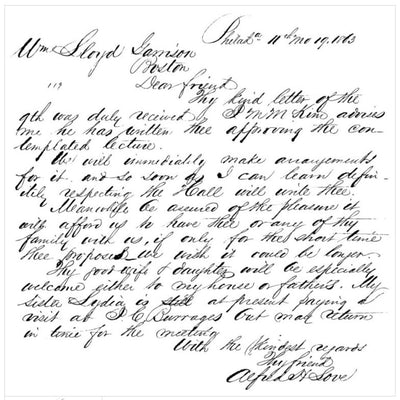 Philada 11th Mo 19, 1863
Wm Lloyd Garrison
Boston
119 Dear friend
Thy kind letter of the
9th was duly received & J M M Kim advises
me he has written thee approving the con-
templated lecture.
We will immediately make arrangements
for it. and so soon as I can learn defin-
itely respecting the Hall will write thee.
Meanwhile be assured of the pleasure it
will afford us to have thee or any of thy
family with us, if only for the short time
thee proposed we wish it could be longer
Thy good wife & daughter will be especially
welcome either to my house or father's. My
sister Lydia is still at present paying a
visit at J E Burrages but may return
in time for the meeting
With the kindest regards
Thy friend
Alfred H Love